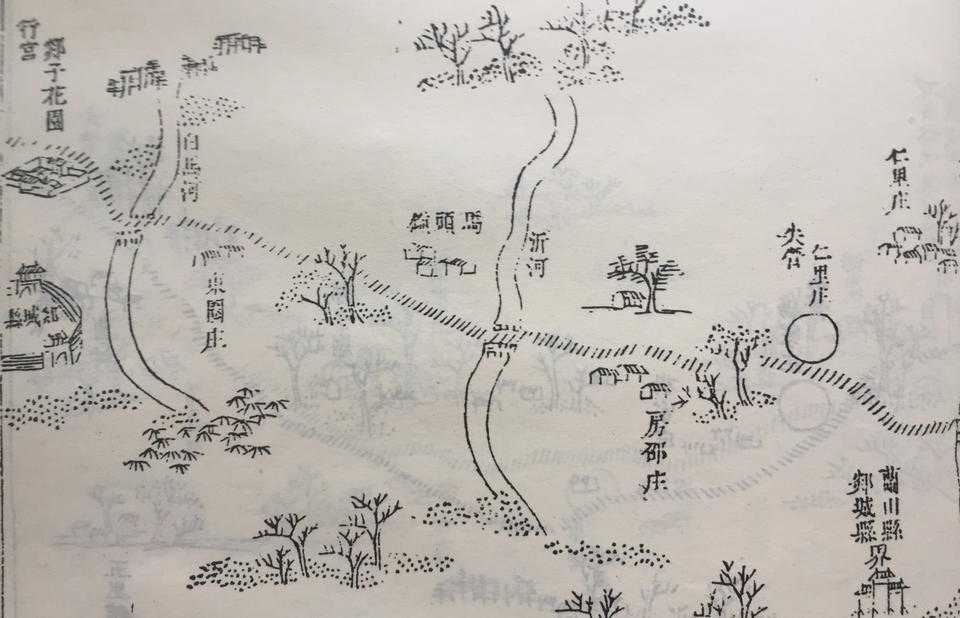 仁里庄
仁里庄
蘭山縣
郯城縣
界
房邵庄
沂河
馬頭鎮
白馬河
郯子花園
行宮